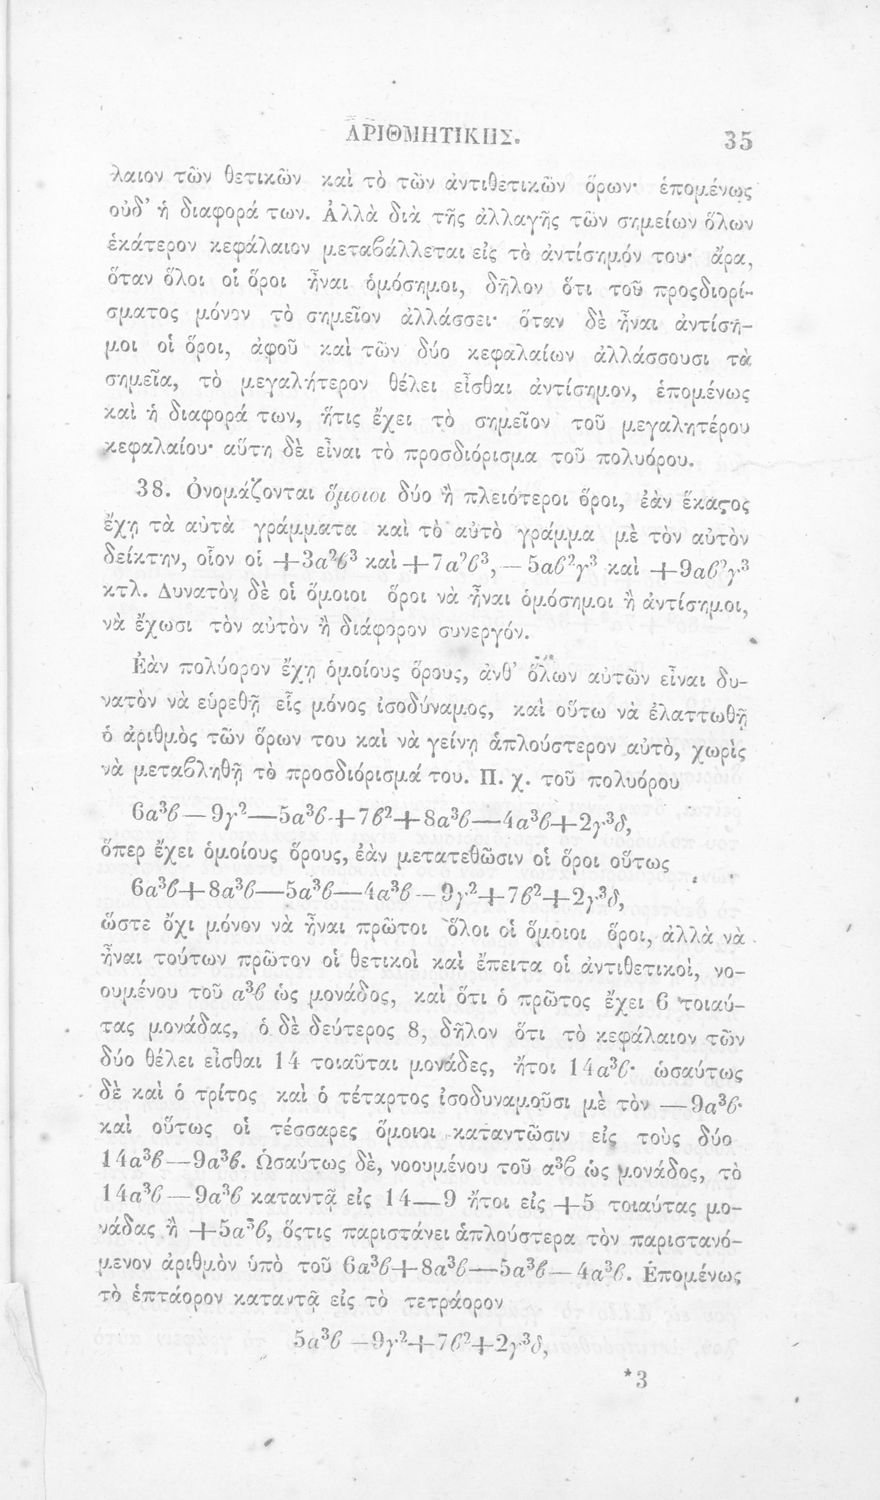 ΑΡΙΘΜΗΤΙΚΗΣ. 35
λαιον τῶν θετικῶν καὶ τὸ τῶν ἀντιθετικῶν ὅρων· ἑπομένως
οὐδ’ ἡ διαφορά των. Ἀλλὰ διὰ τῆς ἀλλαγῆς τῶν σημείων ὅλων
ἑκάτερον κεφάλαιον μεταβάλλεται εἰς τὸ ἀντίσημόν του· ἄρα,
ὅταν ὅλοι οἱ ὅροι ἦναι ὁμόσημοι, δῆλον ὅτι τοῦ προςδιορί-
σματος μόνον τὸ σημεῖον ἀλλάσσει· ὅταν δὲ ἦναι ἀντίση-
μοι οἱ ὅροι, ἀφοῦ καὶ τῶν δύο κεφαλαίων ἀλλάσσουσι τὰ
σημεῖα, τὸ μεγαλήτερον θέλει εἶσθαι ἀντίσημον, ἑπομένως
καὶ ἡ διαφορά των, ἥτις ἔχει τὸ σημεῖον τοῦ μεγαλητέρου
κεφαλαίου· αὕτη δὲ εἶναι τὸ προσδιόρισμα τοῦ πολυόρου.
38. Ὀνομάζονται ὅμοιοι δύο ἢ πλειότεροι ὅροι, ἐὰν ἕκαϛος
ἔχῃ τὰ αὐτὰ γράμματα καὶ τὸ αὐτὸ γράμμα μὲ τὸν αὐτὸν
δείκτην, οἷον οἱ +3α²β³ καὶ +7α²β³, —5αβ²γ³ καὶ +9αβ²γ³
κτλ. Δυνατὸν δὲ οἱ ὅμοιοι ὅροι νὰ ἦναι ὁμόσημοι ἢ ἀντίσημοι,
νὰ ἔχωσι τὸν αὐτὸν ἢ διάφορον συνεργόν.
Ἐὰν πολύορον ἔχῃ ὁμοίους ὅρους, ἀνθ’ ὅλων αὐτῶν εἶναι δυ-
νατὸν νὰ εὑρεθῇ εἷς μόνος ἰσοδύναμος, καὶ οὕτω νὰ ἐλαττωθῇ
ὁ ἀριθμὸς τῶν ὅρων του καὶ νὰ γείνῃ ἁπλούστερον αὐτὸ, χωρὶς
νὰ μεταβληθῇ τὸ προσδιόρισμά του. Π. χ. τοῦ πολυόρου
6α³β—9γ²—5α³β+7β²+8α³β—4α³β+2γ³δ,
ὅπερ ἔχει ὁμοίους ὅρους, ἐὰν μετατεθῶσιν οἱ ὅροι οὕτως
6α³β+8α³β—5α³β—4α³β—9γ²+7β²+2γ³δ,
ὥστε ὄχι μόνον νὰ ἦναι πρῶτοι ὅλοι οἱ ὅμοιοι ὅροι, ἀλλὰ νὰ
ἦναι τούτων πρῶτον οἱ θετικοὶ καὶ ἔπειτα οἱ ἀντιθετικοὶ, νο-
ουμένου τοῦ α³β ὡς μονάδος, καὶ ὅτι ὁ πρῶτος ἔχει 6 τοιαύ-
τας μονάδας, ὁ δὲ δεύτερος 8, δῆλον ὅτι τὸ κεφάλαιον τῶν
δύο θέλει εἶσθαι 14 τοιαῦται μονάδες, ἤτοι 14α³β· ὡσαύτως
δὲ καὶ ὁ τρίτος καὶ ὁ τέταρτος ἰσοδυναμοῦσι μὲ τὸν —9α³β·
καὶ οὕτως οἱ τέσσαρες ὅμοιοι καταντῶσιν εἰς τοὺς δύο
14α³β—9α³β. Ὡσαύτως δὲ, νοουμένου τοῦ α³β ὡς μονάδος, τὸ
14α³β—9α³β καταντᾷ εἰς 14—9 ἤτοι εἰς +5 τοιαύτας μο-
νάδας ἢ +5α³β, ὅςτις παριστάνει ἁπλούστερα τὸν παριστανό-
μενον ἀριθμὸν ὑπὸ τοῦ 6α³β+8α³β—5α³β—4α³β. Ἑπομένως
τὸ ἑπτάορον καταντᾷ εἰς τὸ τετράορον
5α³β—9γ²+7β²+2γ³δ,
*3